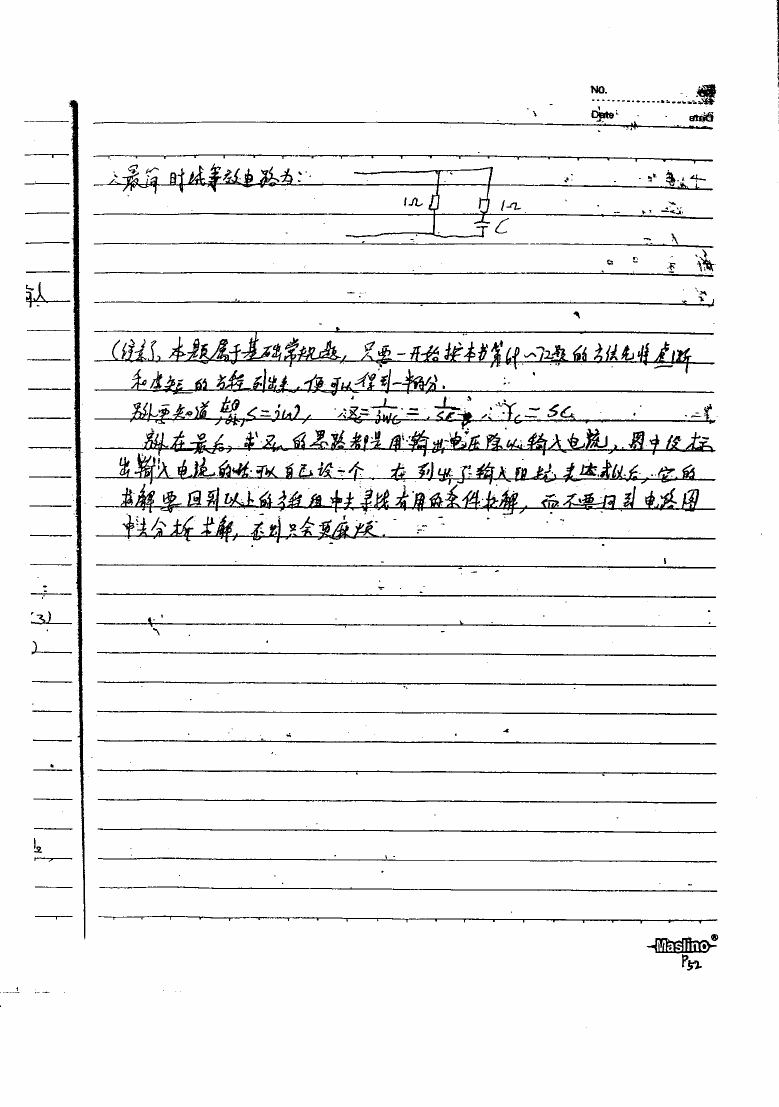 No.
Date
∴最简时域等效电路为:
1Ω 1Ω
C
(综述), 本题属于基础常规题, 只要一开始按本书第 ~72题的方法先将虚断
和虚短的方程列出来, 便可以得到一半的分.
另外要知道, S=jω, Zc=1/jωC = 1/SC ∴ Yc = SC.
另外在最后, 求Zin的思路都是用输出电压除以输入电流, 图中没标
出输入电流的话可以自己设一个 在列出了输入阻抗表达式以后, 它的
求解要回到以上的方程组中去寻找有用的条件求解, 而不要回到电路图
中去分析求解, 否则只会更麻烦.
(3)
)
Maslino®
P52